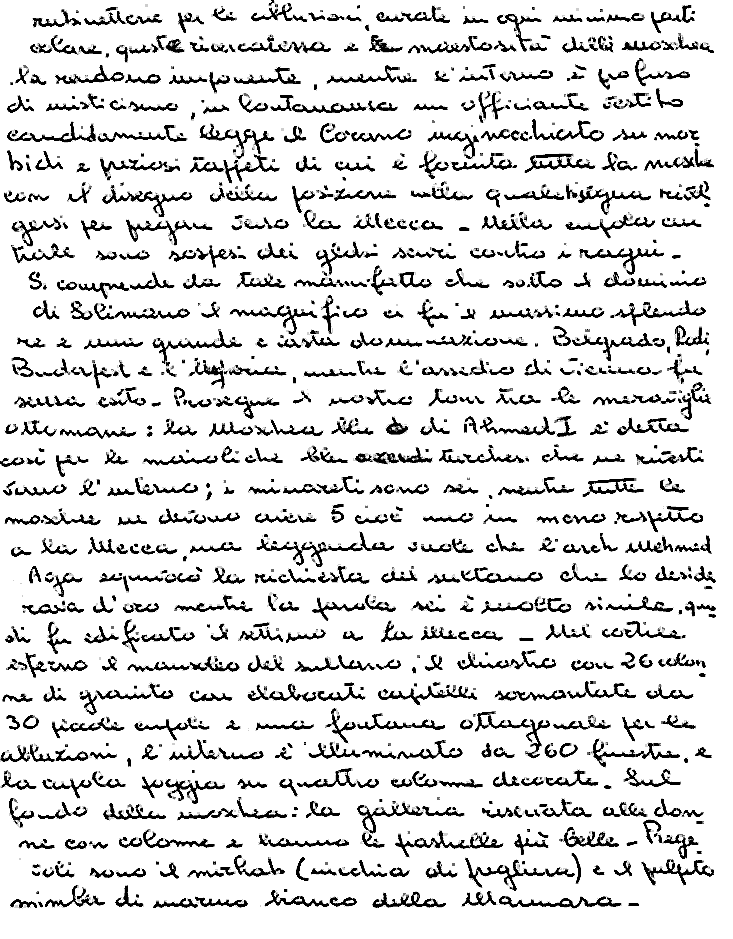 rubinetterie per le abluzioni, curate in ogni minimo parti
colare, queste ricercatezza e le maestosità delle moschea
la rendono imponente, mentre l'interno è profuso
di misticismo, in lontananza un officiante vestito
candidamente legge il Corano inginocchiato su mor
bidi e preziosi tappeti di cui è fornita tutta la moschea
con il disegno della posizione nella quale bisogna rivol
gersi per pregare verso la Mecca - Nella cupola cen
trale sono sospesi dei globi scuri contro i ragni -
Si comprende da tale manufatto che sotto il dominio
di Solimano il magnifico ci fu il massimo splendo
re e una grande e vasta dominazione. Belgrado, Rodi,
Budapest e l'Ungheria, mentre l'assedio di Vienna fu
senza esito - Prosegue il nostro tour tra le meraviglie
ottomane: la Moschea blu di Ahmed I è detta
così per le maioliche blu turchesi che ne rivesti
vano l'interno; i minareti sono sei, mentre tutte le
moschee ne devono avere 5 cioè uno in meno rispetto
a la Mecca, ma leggenda vuole che l'arch Mehmed
Aga equivocò la richiesta del sultano che lo deside
rava d'oro mentre la parola sei è molto simile, quin
di fu edificato il settimo a la Mecca - Nel cortile
esterno il mausoleo del sultano, il chiostro con 26 colon
ne di granito con elaborati capitelli sormontate da
30 piccole cupole e una fontana ottagonale per le
abluzioni, l'interno è illuminato da 260 finestre, e
la cupola poggia su quattro colonne decorate. Sul
fondo della moschea: la galleria riservata alle don
ne con colonne e hanno le piastrelle più belle - Prege
voli sono il mirhab (nicchia di preghiera) e il pulpito
mimber di marmo bianco della Marmara -